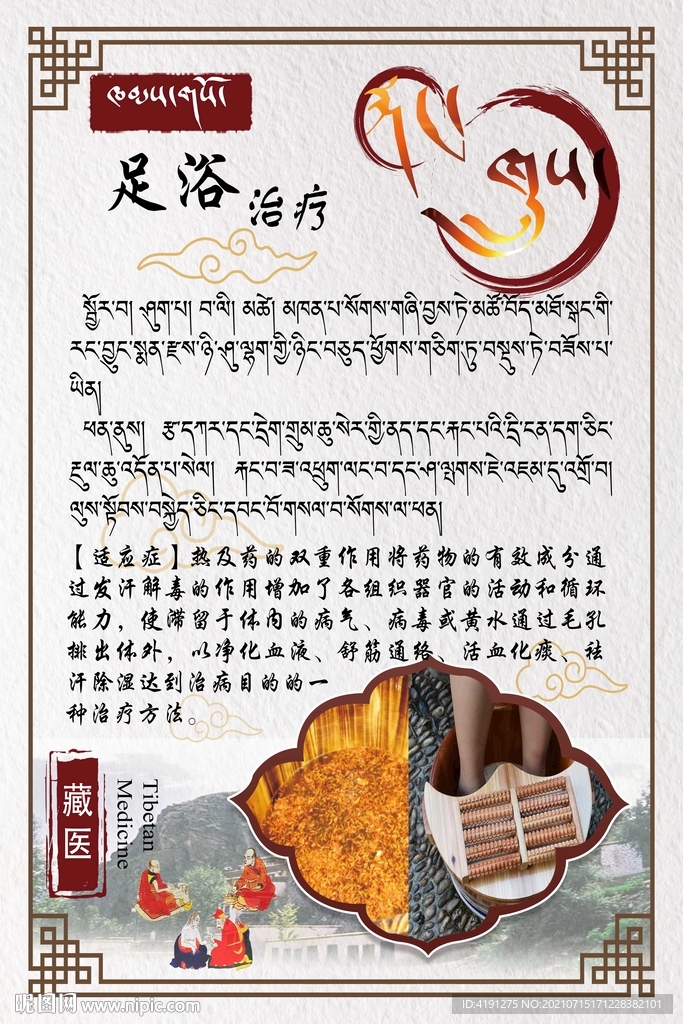 足浴
治疗
སྦྱོར་བ། ཤུག་པ། བ་ལི། མཚེ། མཁན་པ་སོགས་གཞི་བྱས་ཏེ་མཚོ་བོད་མཐོ་སྒང་གི་
རང་བྱུང་སྨན་རྫས་ཉི་ཤུ་ལྷག་གྱི་ཉིང་བཅུད་ཕྱོགས་གཅིག་ཏུ་བསྡུས་ཏེ་བཟོས་པ་
ཡིན།
ཕན་ནུས། རྩ་དཀར་དང་དྲེག་གྲུམ་ཆུ་སེར་གྱི་ནད་དང་རྐང་པའི་དྲི་ངན་དག་ཅིང་
རྔུལ་ཆུ་འདོན་པ་སེལ། རྐང་བ་ཟ་འཕྲུག་ལང་བ་དང་ཤ་ལྤགས་ཇེ་འཇམ་དུ་འགྲོ་བ།
ལུས་སྟོབས་བསྐྱེད་ཅིང་དབང་བོ་གསལ་བ་སོགས་ལ་ཕན།
【适应症】热及药的双重作用将药物的有效成分通
过发汗解毒的作用增加了各组织器官的活动和循环
能力，使滞留于体内的病气、病毒或黄水通过毛孔
排出体外，以净化血液、舒筋通络、活血化痰、祛
汗除湿达到治病目的的一
种治疗方法。
藏医
Tibetan
Medicine
昵图网 www.nipic.com
ID:4191275 NO:20210715171228382101